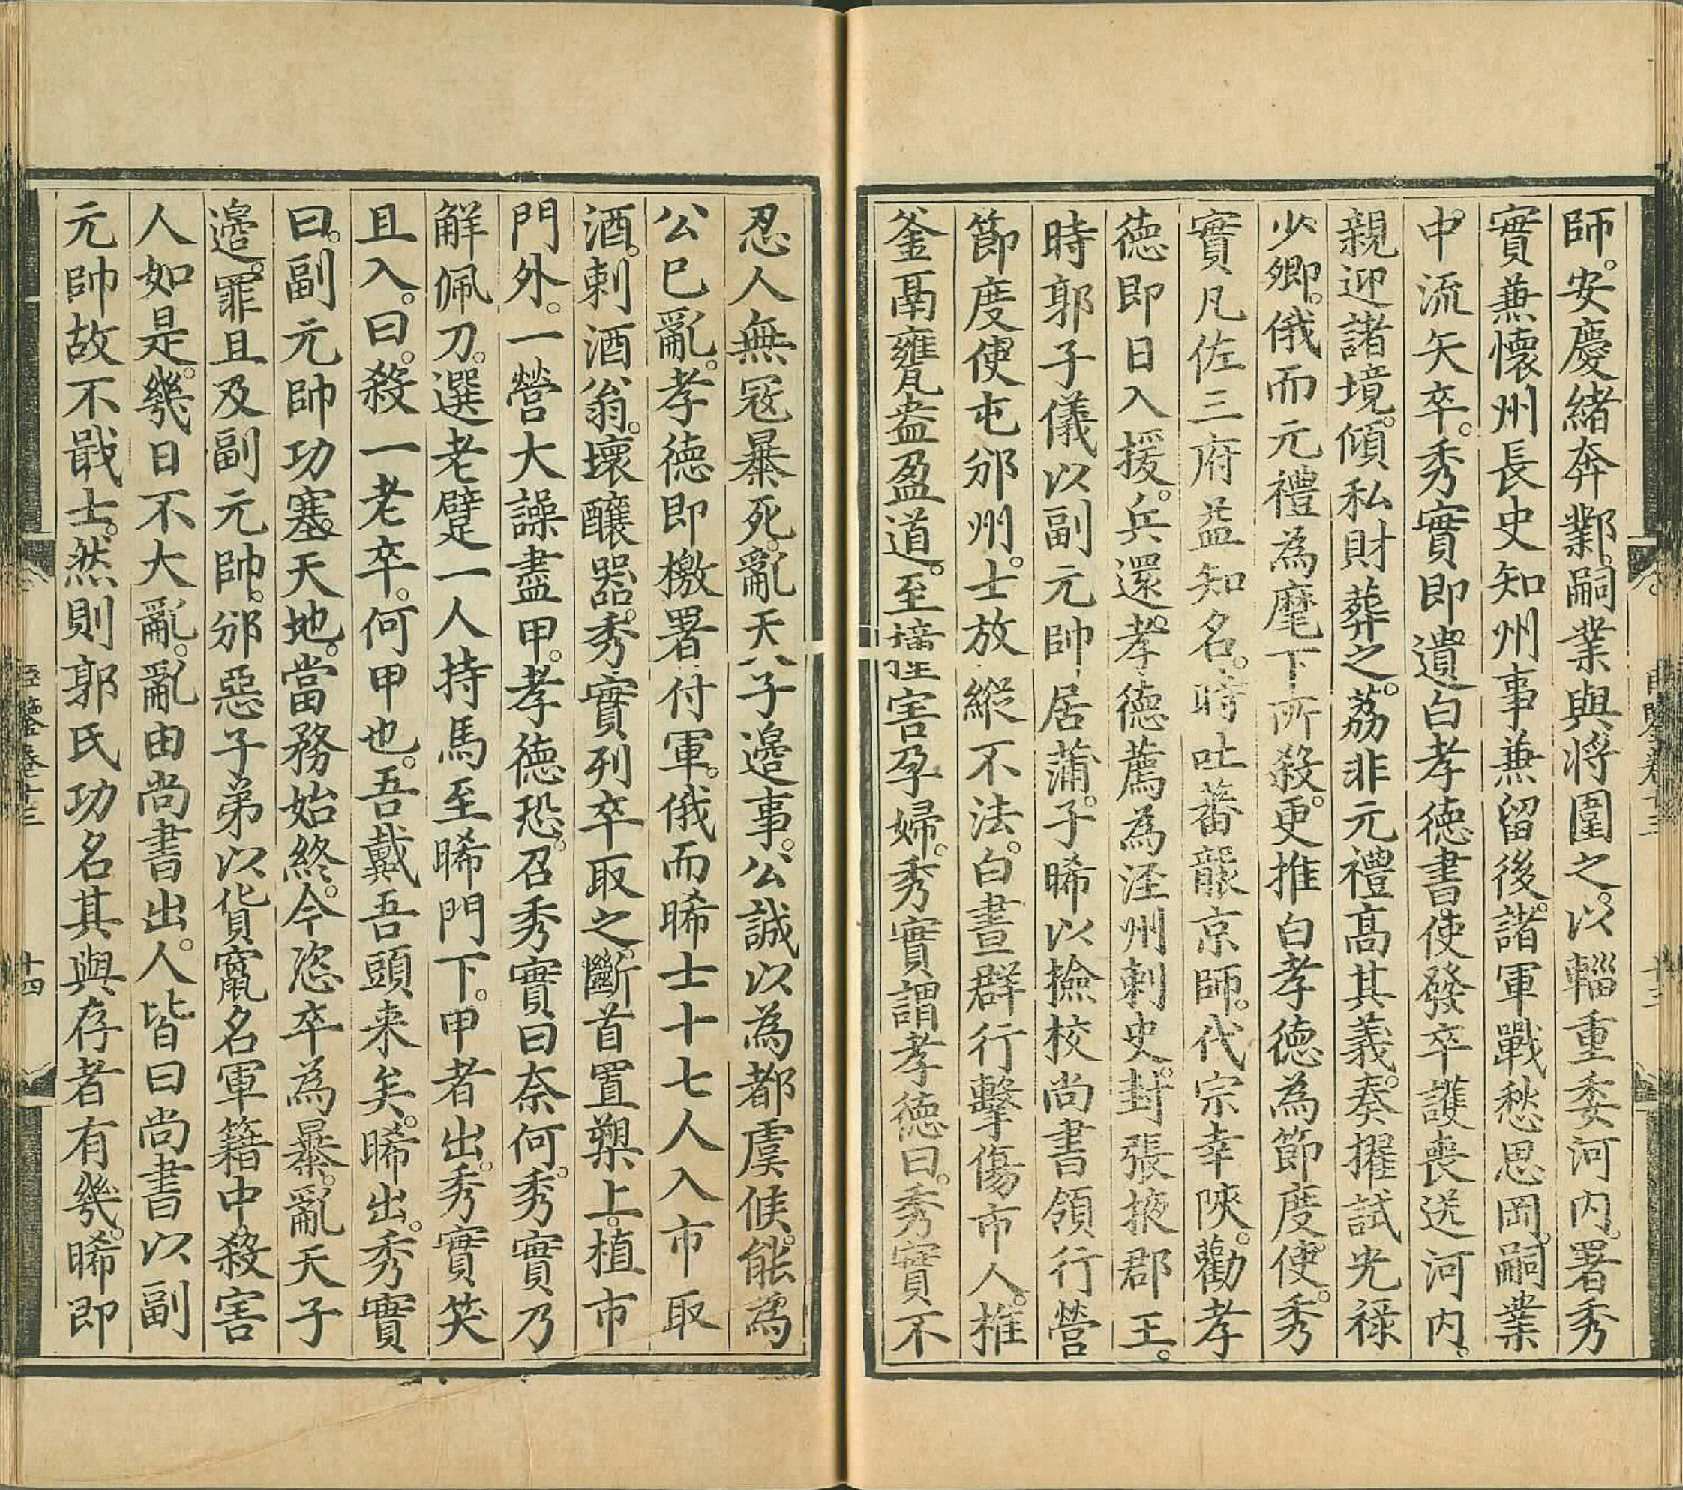 師。安慶緒奔鄴。嗣業與將圍之。以輜重委河内。署秀
實兼懷州長史知州事兼留後。諸軍戰愁思岡。嗣業
中流矢卒。秀實即遺白孝德書。使發卒護喪送河内。
親迎諸境。傾私財葬之。荔非元禮高其義。奏擢試光祿
少卿。俄而元禮為麾下所殺。更推白孝德為節度使。秀
實凡佐三府益知名。時吐蕃襲京師。代宗幸陝。勸孝
德即日入援。兵還。孝德薦為涇州刺史。封張掖郡王。
時郭子儀以副元帥居蒲。子晞以撿校尚書領行營
節度使屯邠州。士放縱不法。白晝群行擊傷市人。椎
釜鬲甕盎盈道。至撞害孕婦。秀實謂孝德曰。秀實不
忍人無寇暴死。亂天子邊事。公誠以為都虞候。能為
公已亂。孝德即檄署付軍。俄而晞士十七人入市取
酒。刺酒翁。壞釀器。秀實列卒取之。斷首置槊上。植市
門外。一營大譟盡甲。孝德恐。召秀實曰奈何。秀實乃
解佩刀。選老躄一人持馬至晞門下。甲者出。秀實笑
且入。曰。殺一老卒。何甲也。吾戴吾頭来矣。晞出。秀實
曰。副元帥功塞天地。當務始終。今恣卒為暴。亂天子
邊。罪且及副元帥。邠惡子弟以貨竄名軍籍中殺害
人如是。幾日不大亂。亂由尚書出。人皆曰尚書以副
元帥故不戢士。然則郭氏功名其與存者有幾。晞即
十四